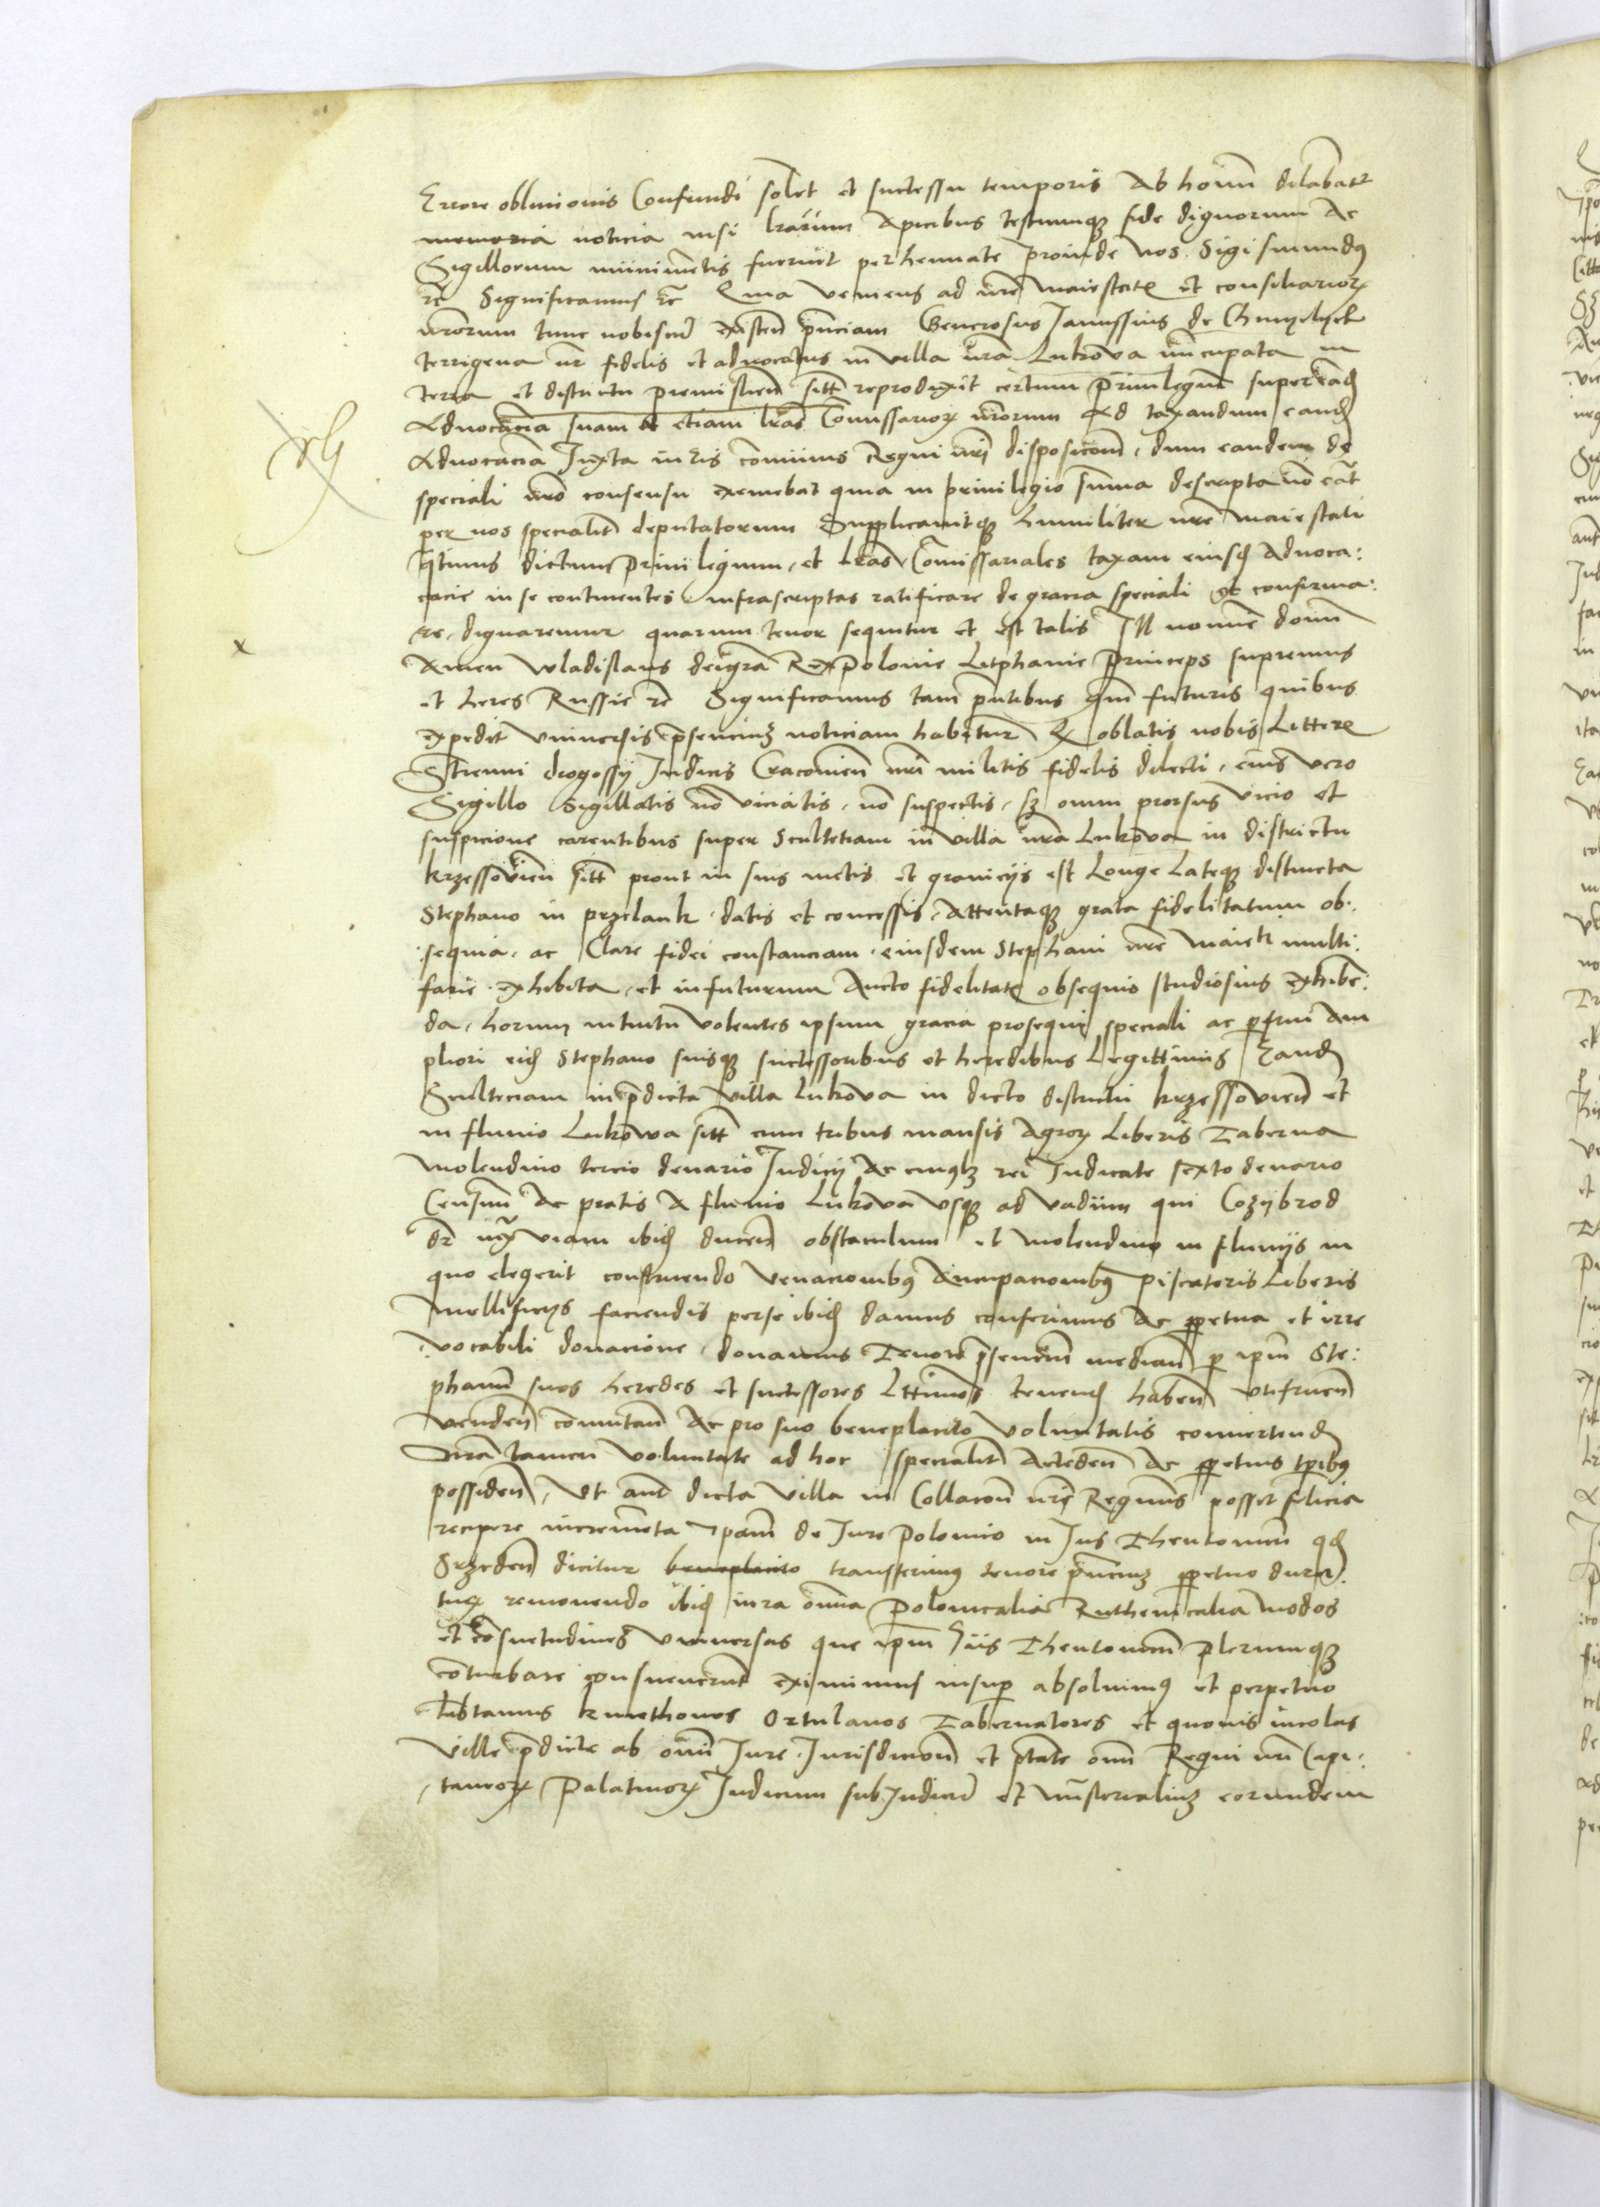 Errore oblivionis Confundi solet et successu temporis Ab hoim dilabatr
memoria noticia nisi lrarum Apicibus testiumque fide dignorum Ac
Sigillorum munimentis fuerint perhennate proinde Nos Sigismundus
rc Significamus rc Quia veniens ad nram maiestatem et consiliariorum
nrorum tunc nobiscum existen pnciam Generosus Janussius de
terrigena nr fidelis et advocatus in villa nra Lukova nuncupata in
terra et districtu premislien sitt reproduxit certum Privilegium super eand
Advocacia suam et etiam lras Comissariorum nrorum Ad taxandum eand
Advocacia Juxta Regni nri disposicom, dum eandem de
speciali nro consensu exemebat quia in privilegio summa descripta non erat
per nos specialit deputatorum Supplicavitque humiliter nre maiestati
qtinus dictum Privilegium, et lras Comissariales taxam eiusd Advoca:
cacie in se continentes infrascriptas ratificare de gracia speciali et confirma:
re, dignaremur quarum tenor sequitur et est talis In nomine domi
Amen Wladislaus dei gra Rex Polonie Litphanie Princeps supremus
et heres Russie rc Significamus tam pntibus qm futuris quibus
expedit universis presencium noticiam habitur Qz oblatis nobis Littere
Strenui drogossy Judicis Cracovien nri militis fidelis dilecti, eius vero
Sigillo Sigillatis no viciatis, no suspectis, sz omni prorsus vicio et
suspicione carentibus super Scultetiam in villa nra Lukova in districtu
krzessovien sitt prout in suis metis et graniciis est Longe Lateque distincta
Stephano in przelank datis et concessis, Attentaque grata fidelitatum ob:
sequia, ac Clare fidei constanciam eiusdem Stephani nre Maiesti multi:
farie exhibita, et in futurum Aucto fidelitate obsequio studiosius exhiben:
da, horum intuitu volentes ipsum gracia prosequi speciali ac
pliori eid Stephano suisque successoribus et heredibus Legittimis Eand
Sculteciam in predicta villa Lukova in dicto districtu krzessovien et
in fluvio Lukowa sitt cum tribus mansis Agrorum Liberis Taberna
Molendino tercio denario Judicy Ac cuiuslibet rei Judicate sexto denario
Censuu Ac pratis A fluvio Lukova usque ad vadum qui Cozybrod
dr iuxta viam ibid ducen obstaculum et Molendino in fluviis in
quo elegerit construendo Venacionibus Aucupacionibus Piscaturis Liberis
Mellificiis faciendis per se ibid damus conferimus Ac perpetua et irre
vocabili donacione, donamus Tenore presencium median per ipm Ste:
phanu suos heredes et successores Lttimos tenend haben utifruen
venden comutan Ac pro suo beneplacito Voluntatis convertend
Nra tamen Voluntate ad hoc specialit Acceden Ac perpetuis tpribus
possiden, Ut aut dicta Villa in Collacon nre Regiminis posset felicia
recipere incrementa Ipam de Jure Polonico in Jus Theutonicum qd
Srzeden dicitur beneplacito transferimus tenore pncium perpetuo dura
turum removendo ibid iura omnia Polonicalia Ruthenicalia Modos
et consuetudines Universas que ipm Jus Theutonicum Plerumque
conturbare consueverunt eximimus insuper absolvimus et perpetuo
Libtamus kmethones Ortulanos Tabernatores et quovis incolas
Ville predicte ab omni Jure Jurisdicion et ptate omni Regni nri Capi:
taneorum Palatinorum Judicum subJudicum et Ministerialium eorundem
x